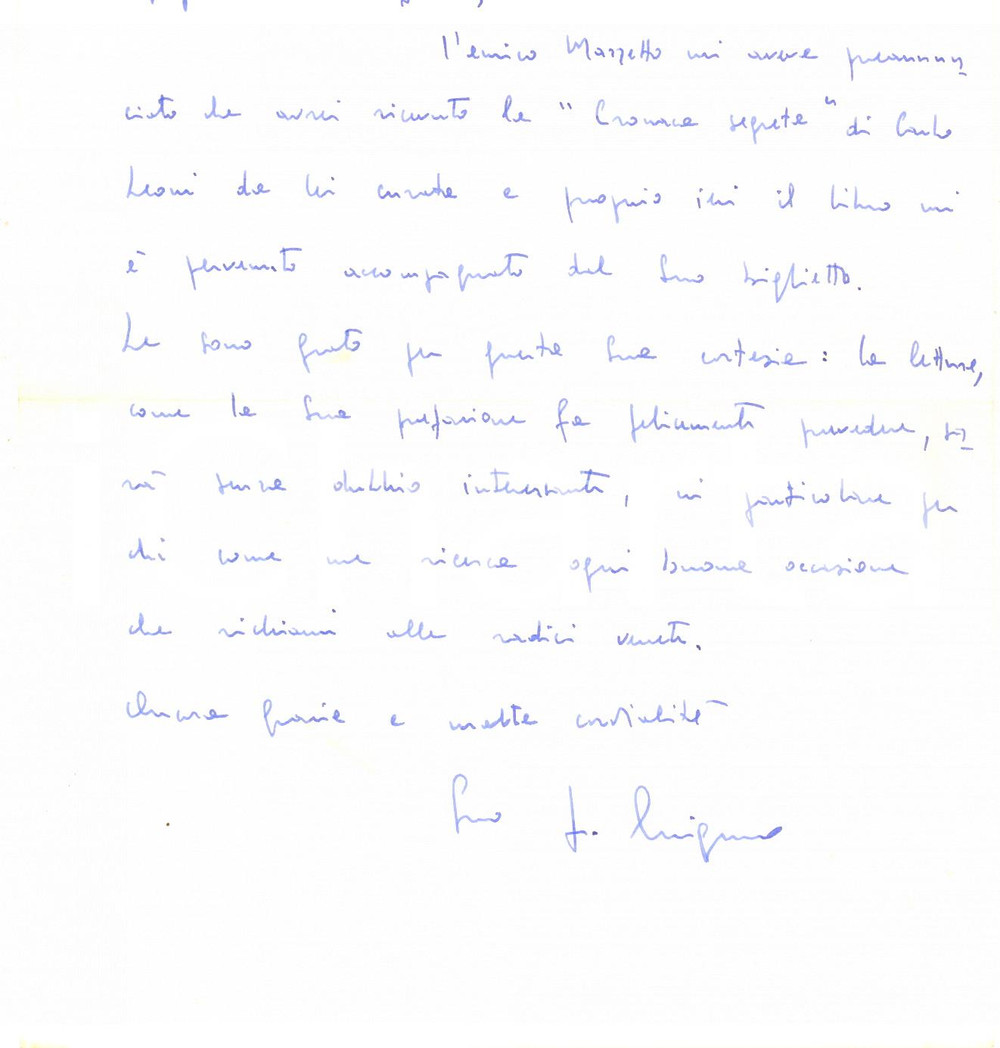 l'amico Mazzetto mi aveva preannun
ciato che avrei ricevuto la "Cronaca segreta" di Carlo
Leoni da lei curata e proprio ieri il libro mi
è pervenuto accompagnato dal Suo biglietto.
Le sono grato per questa Sua cortesia: la lettura,
come la Sua prefazione fa felicemente prevedere, sa
rà senza dubbio interessante, in particolare per
chi come me ricerca ogni buona occasione
che richiami alle radici venete.
Ancora grazie e molta cordialità
Suo F.